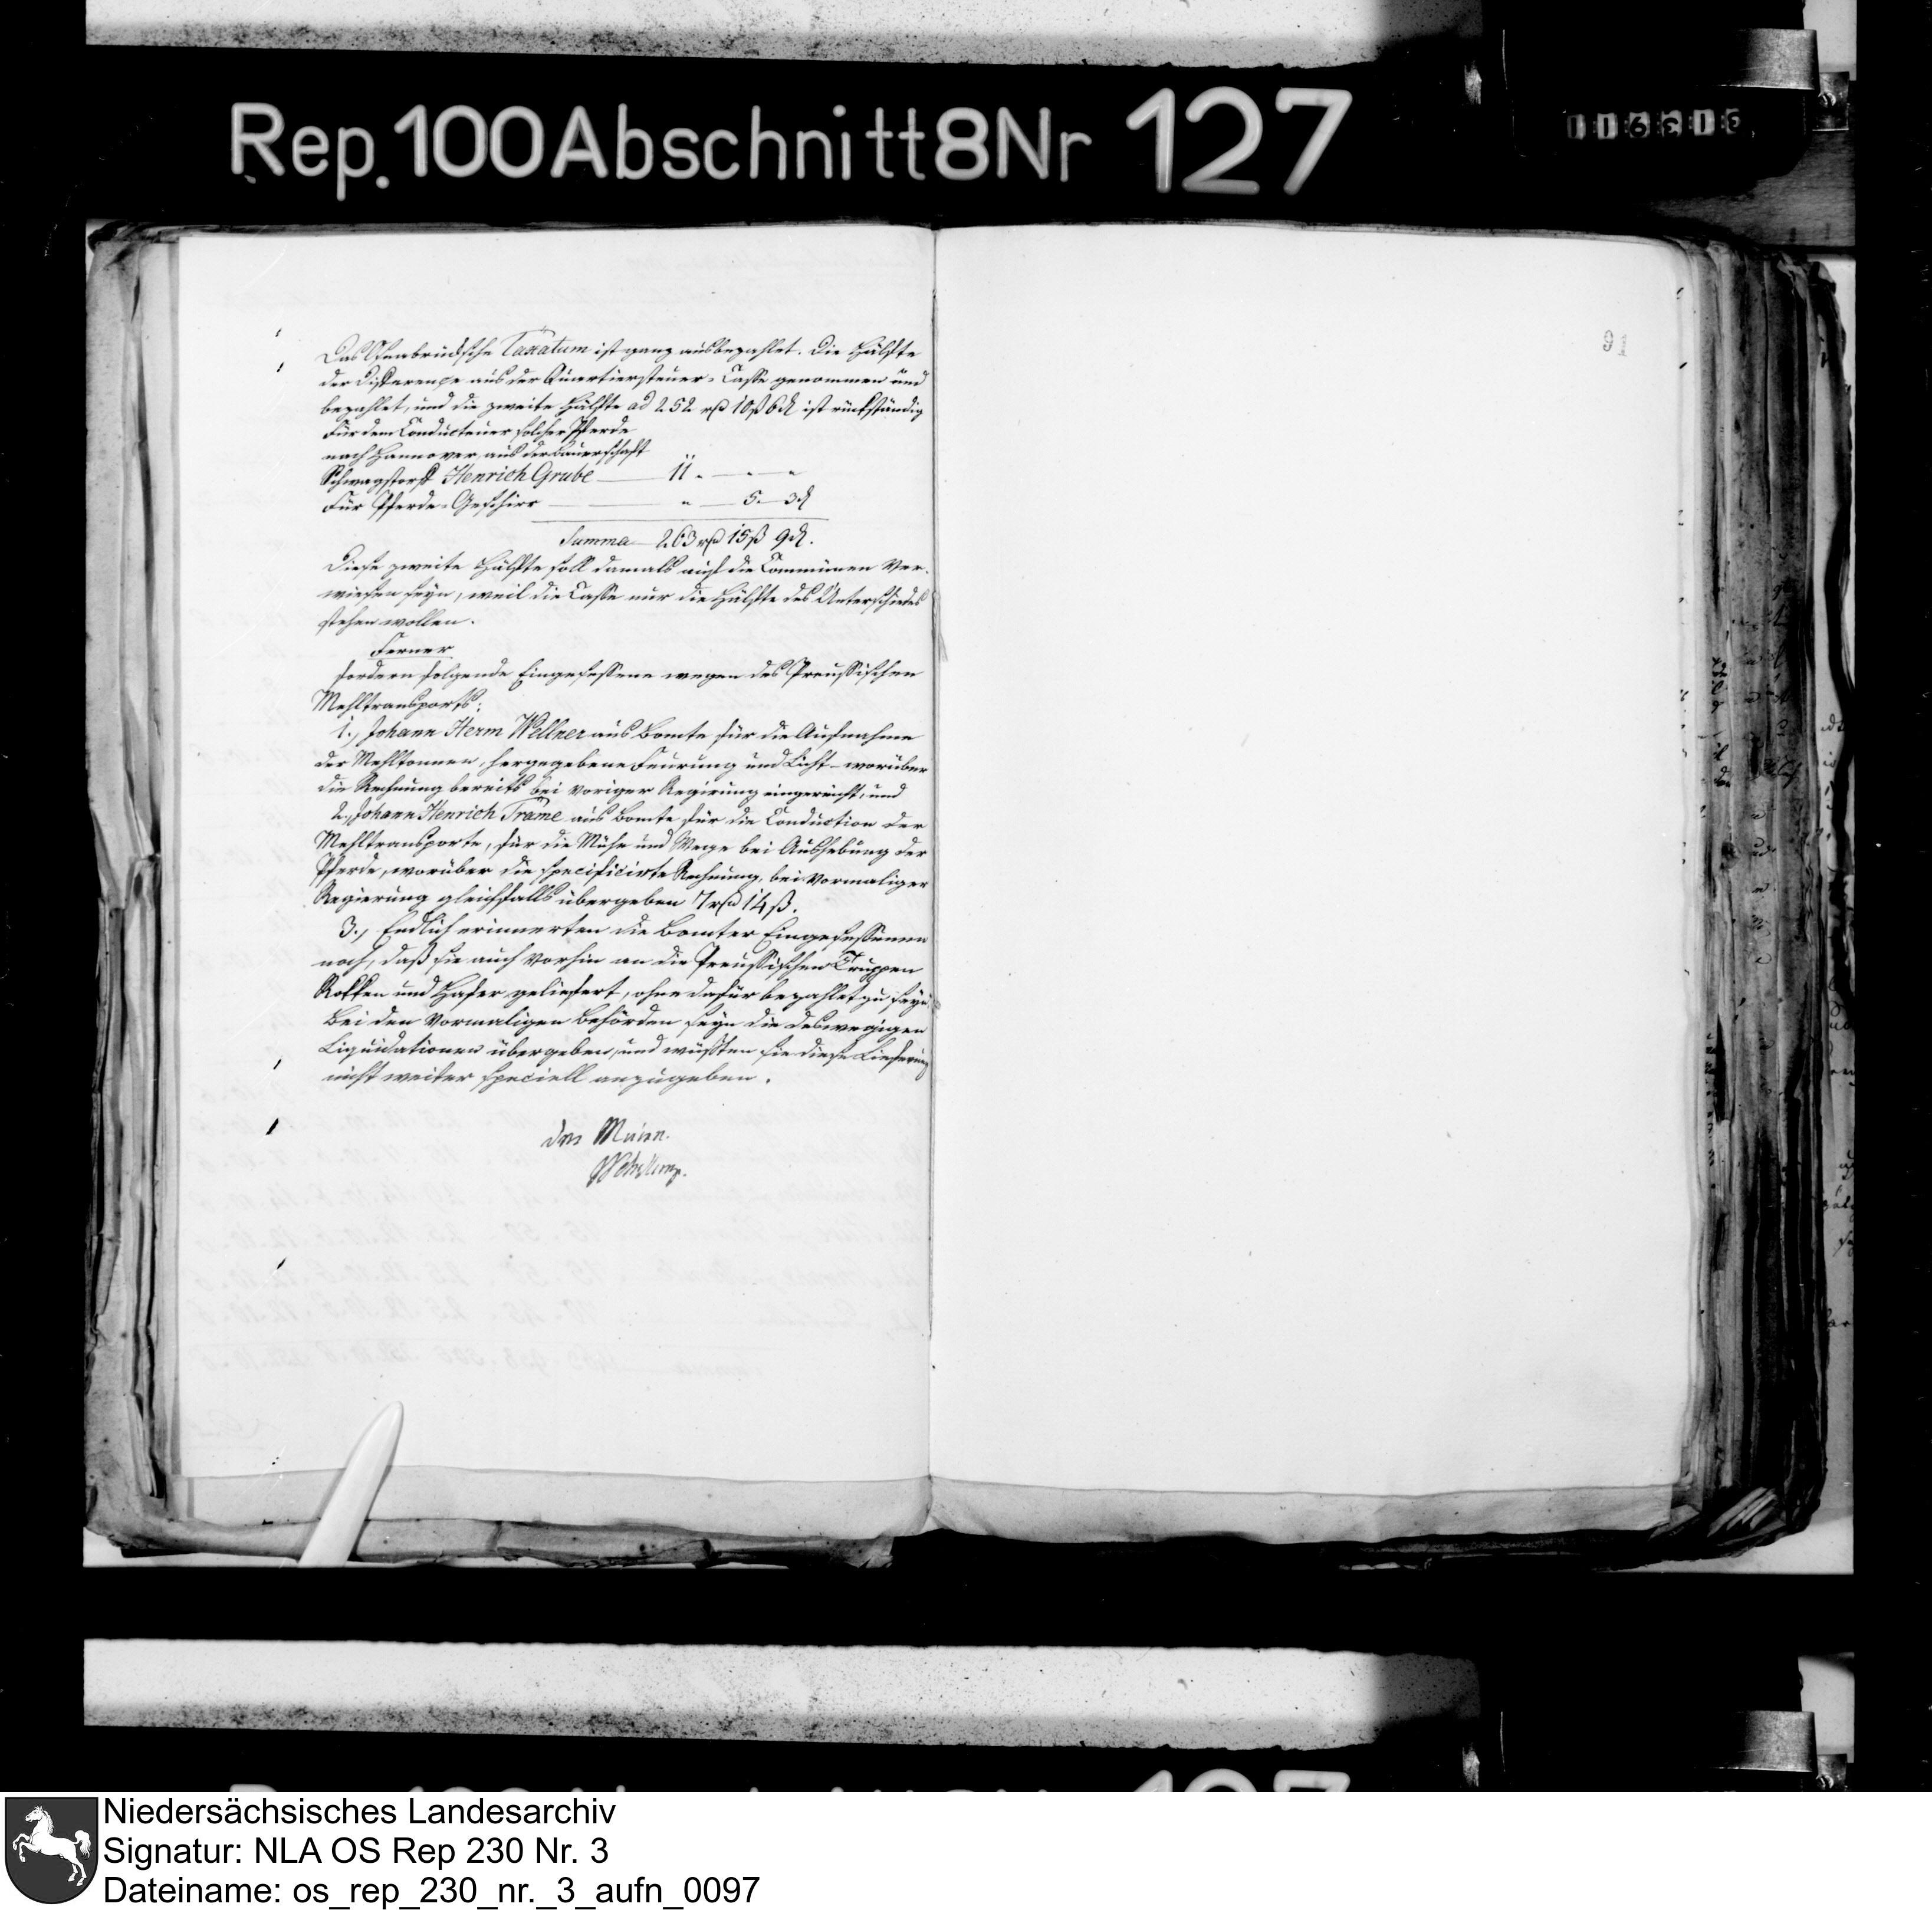 Rep. 100 Abschnitt 8 Nr 127
116315
91
Das Osnabrücksche Taxatum ist ganz ausbezahlet. Die Hälfte
der Differenze aus der Quartiersteuer-Casse genommen und
bezahlet, und die zweite Hälfte ad 252 rß 10ß 6d ist rückständig
Für dem Conducteuer solcher Pferde
nach Hannover, aus der Bauerschaft
Schwagstorf Henrich Grube 11 " "
Für Pferde-Geschirr " 5. 3d
Summa 263 rß 15ß 9d.
Diese zweite Hälfte soll damals auf die Communen ver-
wiesen seyn, weil die Casse nur die Hälfte des Unterschiedes
stehen wollen.
Ferner
fordern folgende Eingesessene wegen des Preussischen
Mehltransports:
1., Johann Herm Wellner aus Bomte für die Aufnahme
der Mehltonnen, hergegebene Feurung und Licht – worüber
die Rechnung bereits bei voriger Regirung eingereicht, und
2., Johann Henrich Trame aus Bomte für die Conduction der
Mehltransporte, für die Mühe und Wege bei Aushebung der
Pferde, worüber die specificirte Rechnung, bei vormaliger
Regierung gleichfalls übergeben 7 rß 14ß.
3., Endlich erinnerten die Bomter Eingesessenen
noch, daß sie auch vorhin an die Preussischen Truppen
Rokken und Hafer geliefert, ohne dafür bezahlet zu seyn.
Bei den vormaligen Behörden seyn die deswegigen
Liquidationen übergeben, und wüßten sie diese Lieferung
nicht weiter speciell anzugeben.
der Maire.
Niedersächsisches Landesarchiv
Signatur: NLA OS Rep 230 Nr. 3
Dateiname: os_rep_230_nr._3_aufn_0097